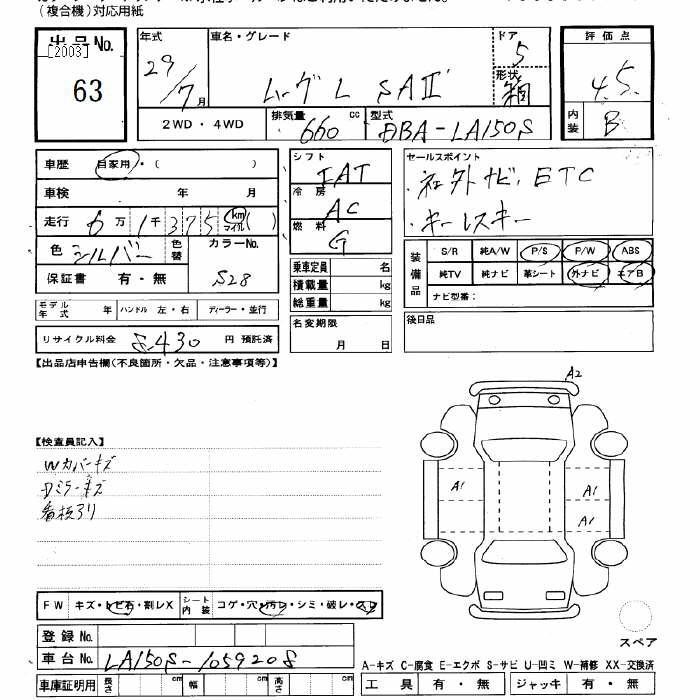 (複合機)対応用紙
出品No.
[2003]
63
年式
29/7月
車名・グレード
ムーヴ L SAⅡ
ドア
5
形状
箱
評価点
4.5
内装
B
2WD・4WD
排気量
660 cc
型式
DBA-LA150S
車歴 自家用・( )
車検 年 月
走行 6万1千375 km マイル ( )
色 シルバー 色替
カラーNo.
S28
保証書 有・無
モデル年式 年 ハンドル 左・右 ディーラー・並行
リサイクル料金 8,430 円 預託済
シフト
IAT
冷房
AC
燃料
G
乗車定員 名
積載量 kg
総重量 kg
名変期限
月 日
セールスポイント
・社外ナビ、ETC
・キーレスキー
装備品
S/R 純A/W P/S P/W ABS
純TV 純ナビ 革シート 外ナビ エアB
ナビ型番:
後日品
【出品店申告欄(不良箇所・欠品・注意事項等)】
【検査員記入】
Wカバーキズ
Dミラーキズ
看板アリ
A2
A1
A1
A1
FW キズ・トビ石・割レX シート内装 コゲ・穴・汚レ・シミ・破レ・スレ
登録No.
車台No. LA150S-1059208
車庫証明用 長さ cm 幅 cm 高さ cm
スペア
A-キズ C-腐食 E-エクボ S-サビ U-凹ミ W-補修 XX-交換済
工具 有・無 ジャッキ 有・無